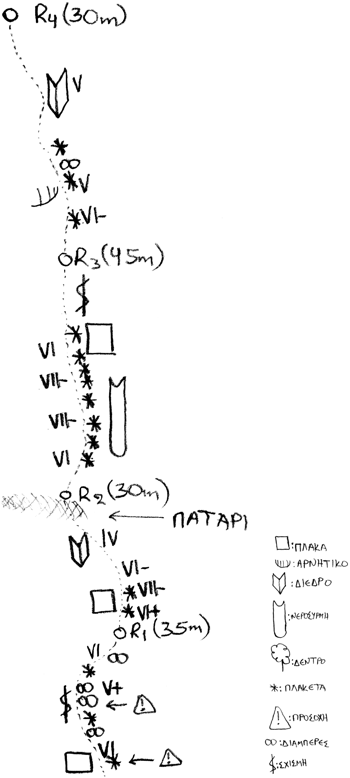 R4 (30m)
V
V
VI-
R3 (45m)
VI
VII-
VII-
VI
R2 (30m)
ΠΑΤΑΡΙ
IV
VI-
VII-
VI+
R1 (35m)
VI
V+
VI
:ΠΛΑΚΑ
:ΑΡΝΗΤΙΚΟ
:ΔΙΕΔΡΟ
:ΝΕΡΟΣΥΡΜΗ
:ΔΕΝΤΡΟ
:ΠΛΑΚΕΤΑ
:ΠΡΟΣΟΧΗ
:ΔΙΑΜΠΕΡΕΣ
:ΣΧΙΣΜΗ